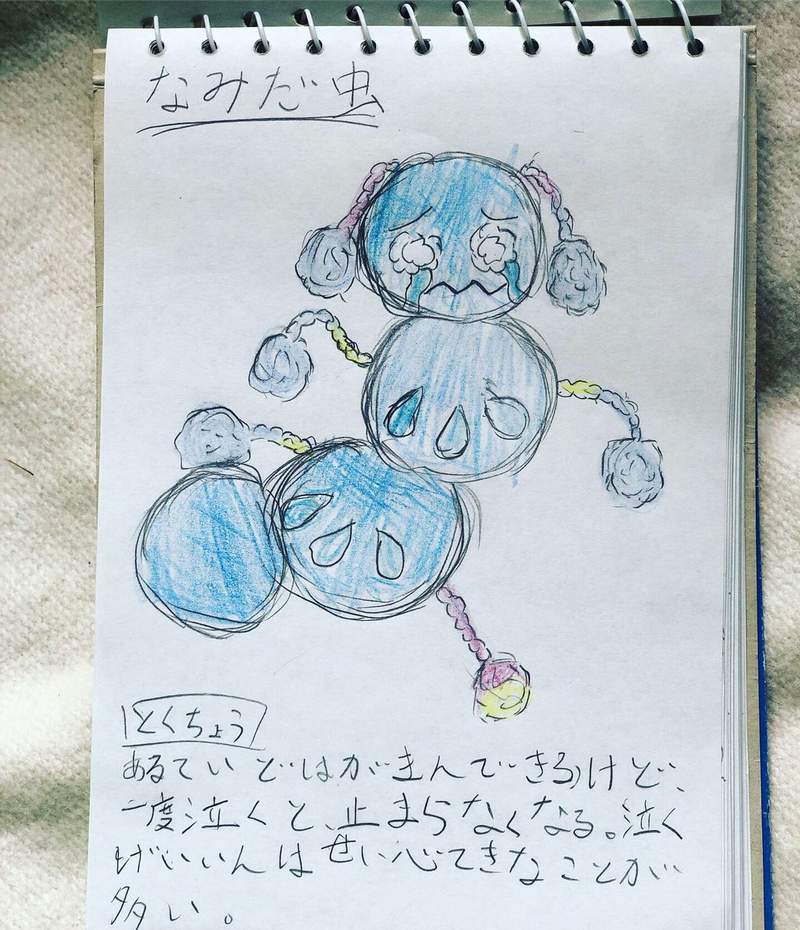 なみだ虫
とくちょう
あるていどはがまんできるけど、
一度泣くと、止まらなくなる。泣く
げいいんはせい心てきなことが
多い。